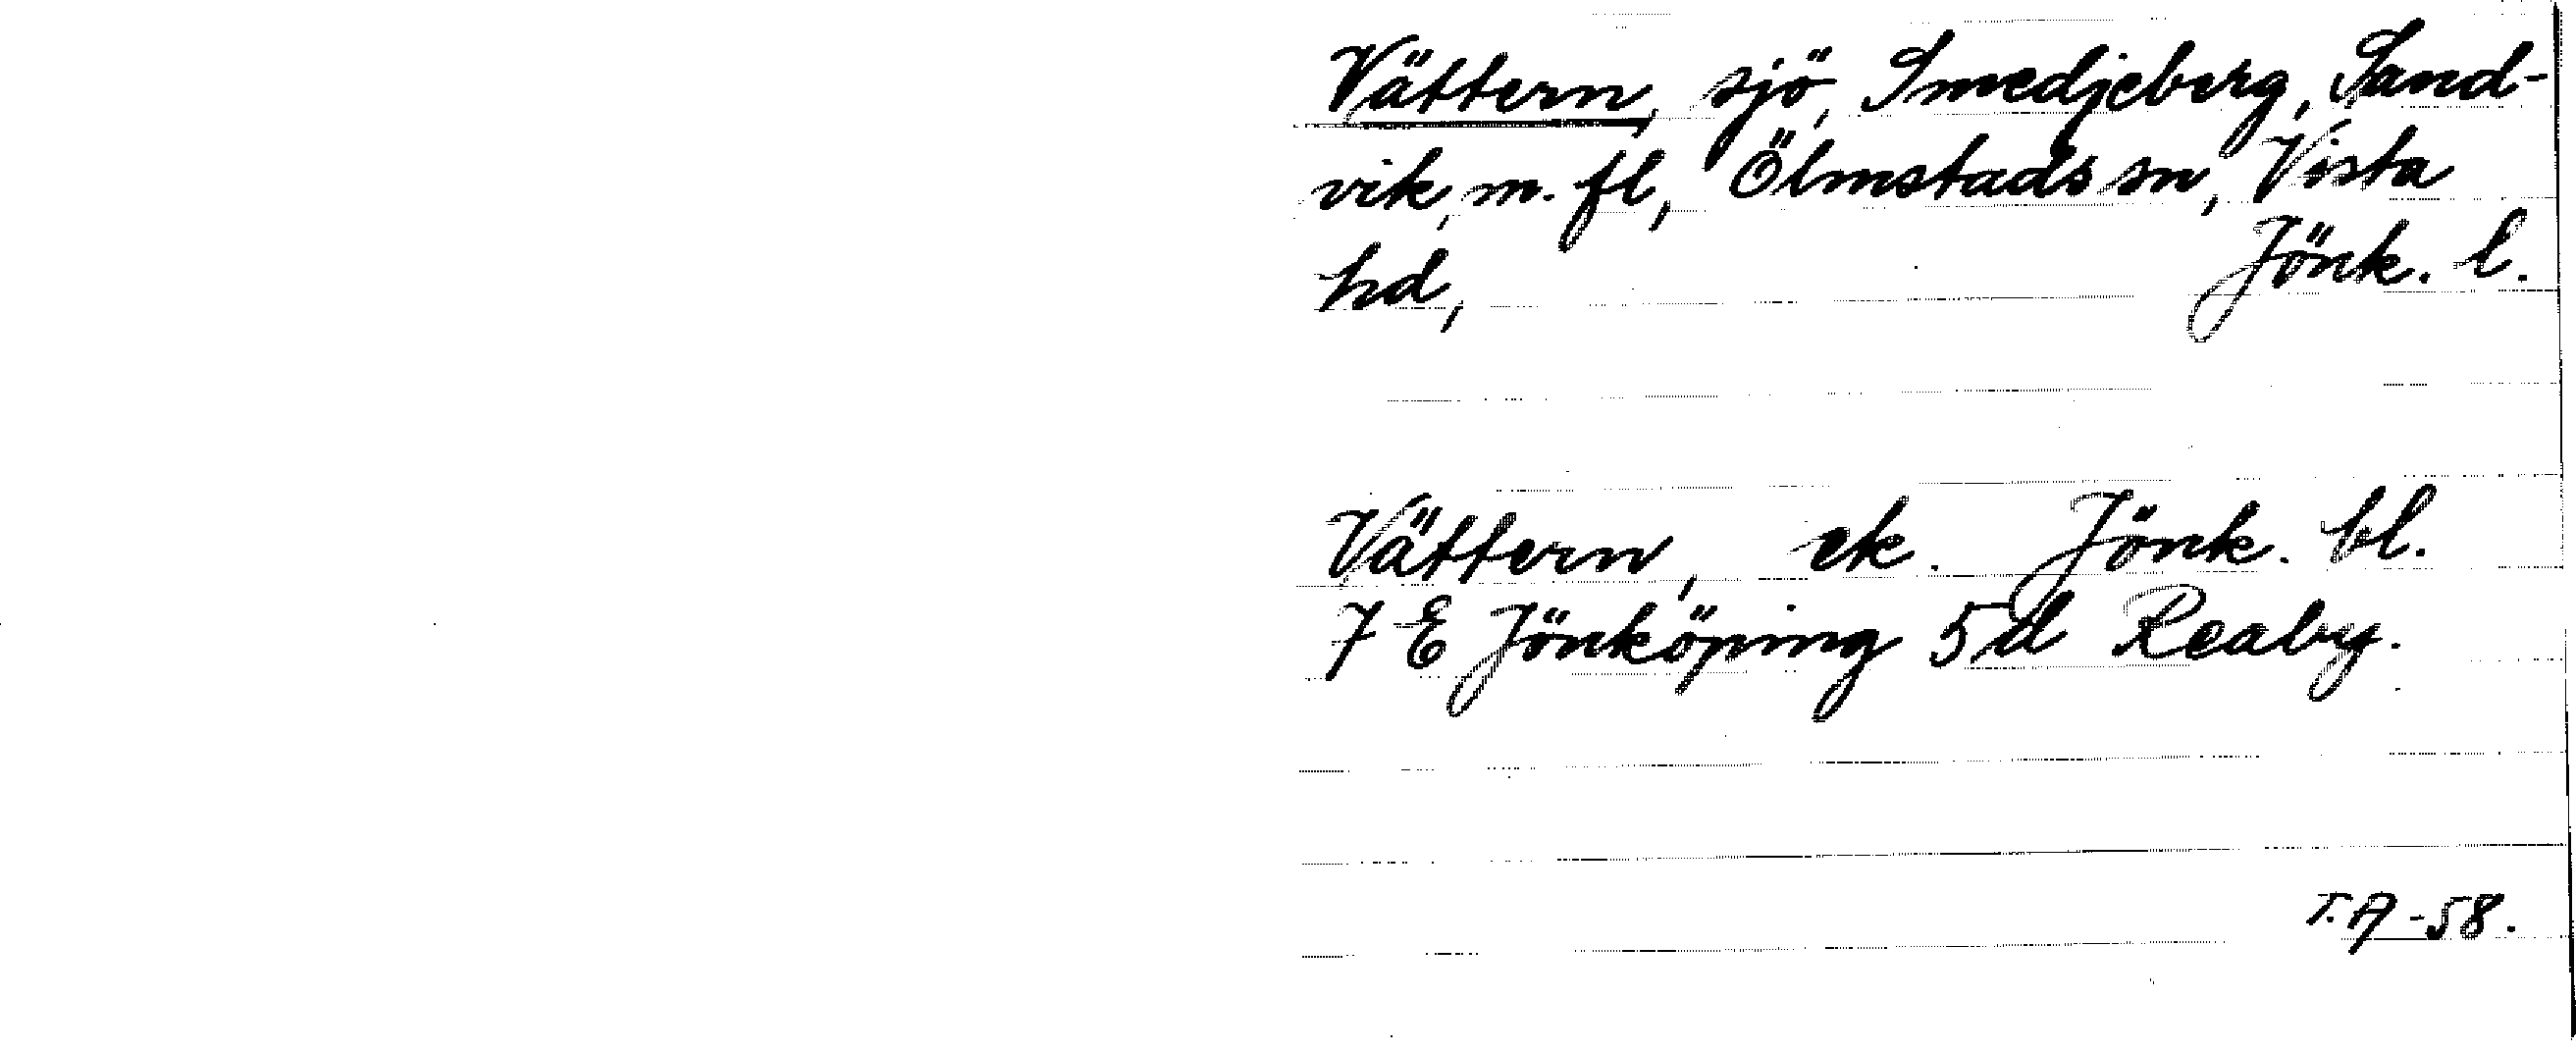 Vättern, sjö, Smedjeberg, Sand-
vik, m. fl, Ölmstads sn, Vista
hd, Jönk. l.
Vättern, ek. Jönk. bl.
7 E Jönköping 5d Reaby.
T.A -58.